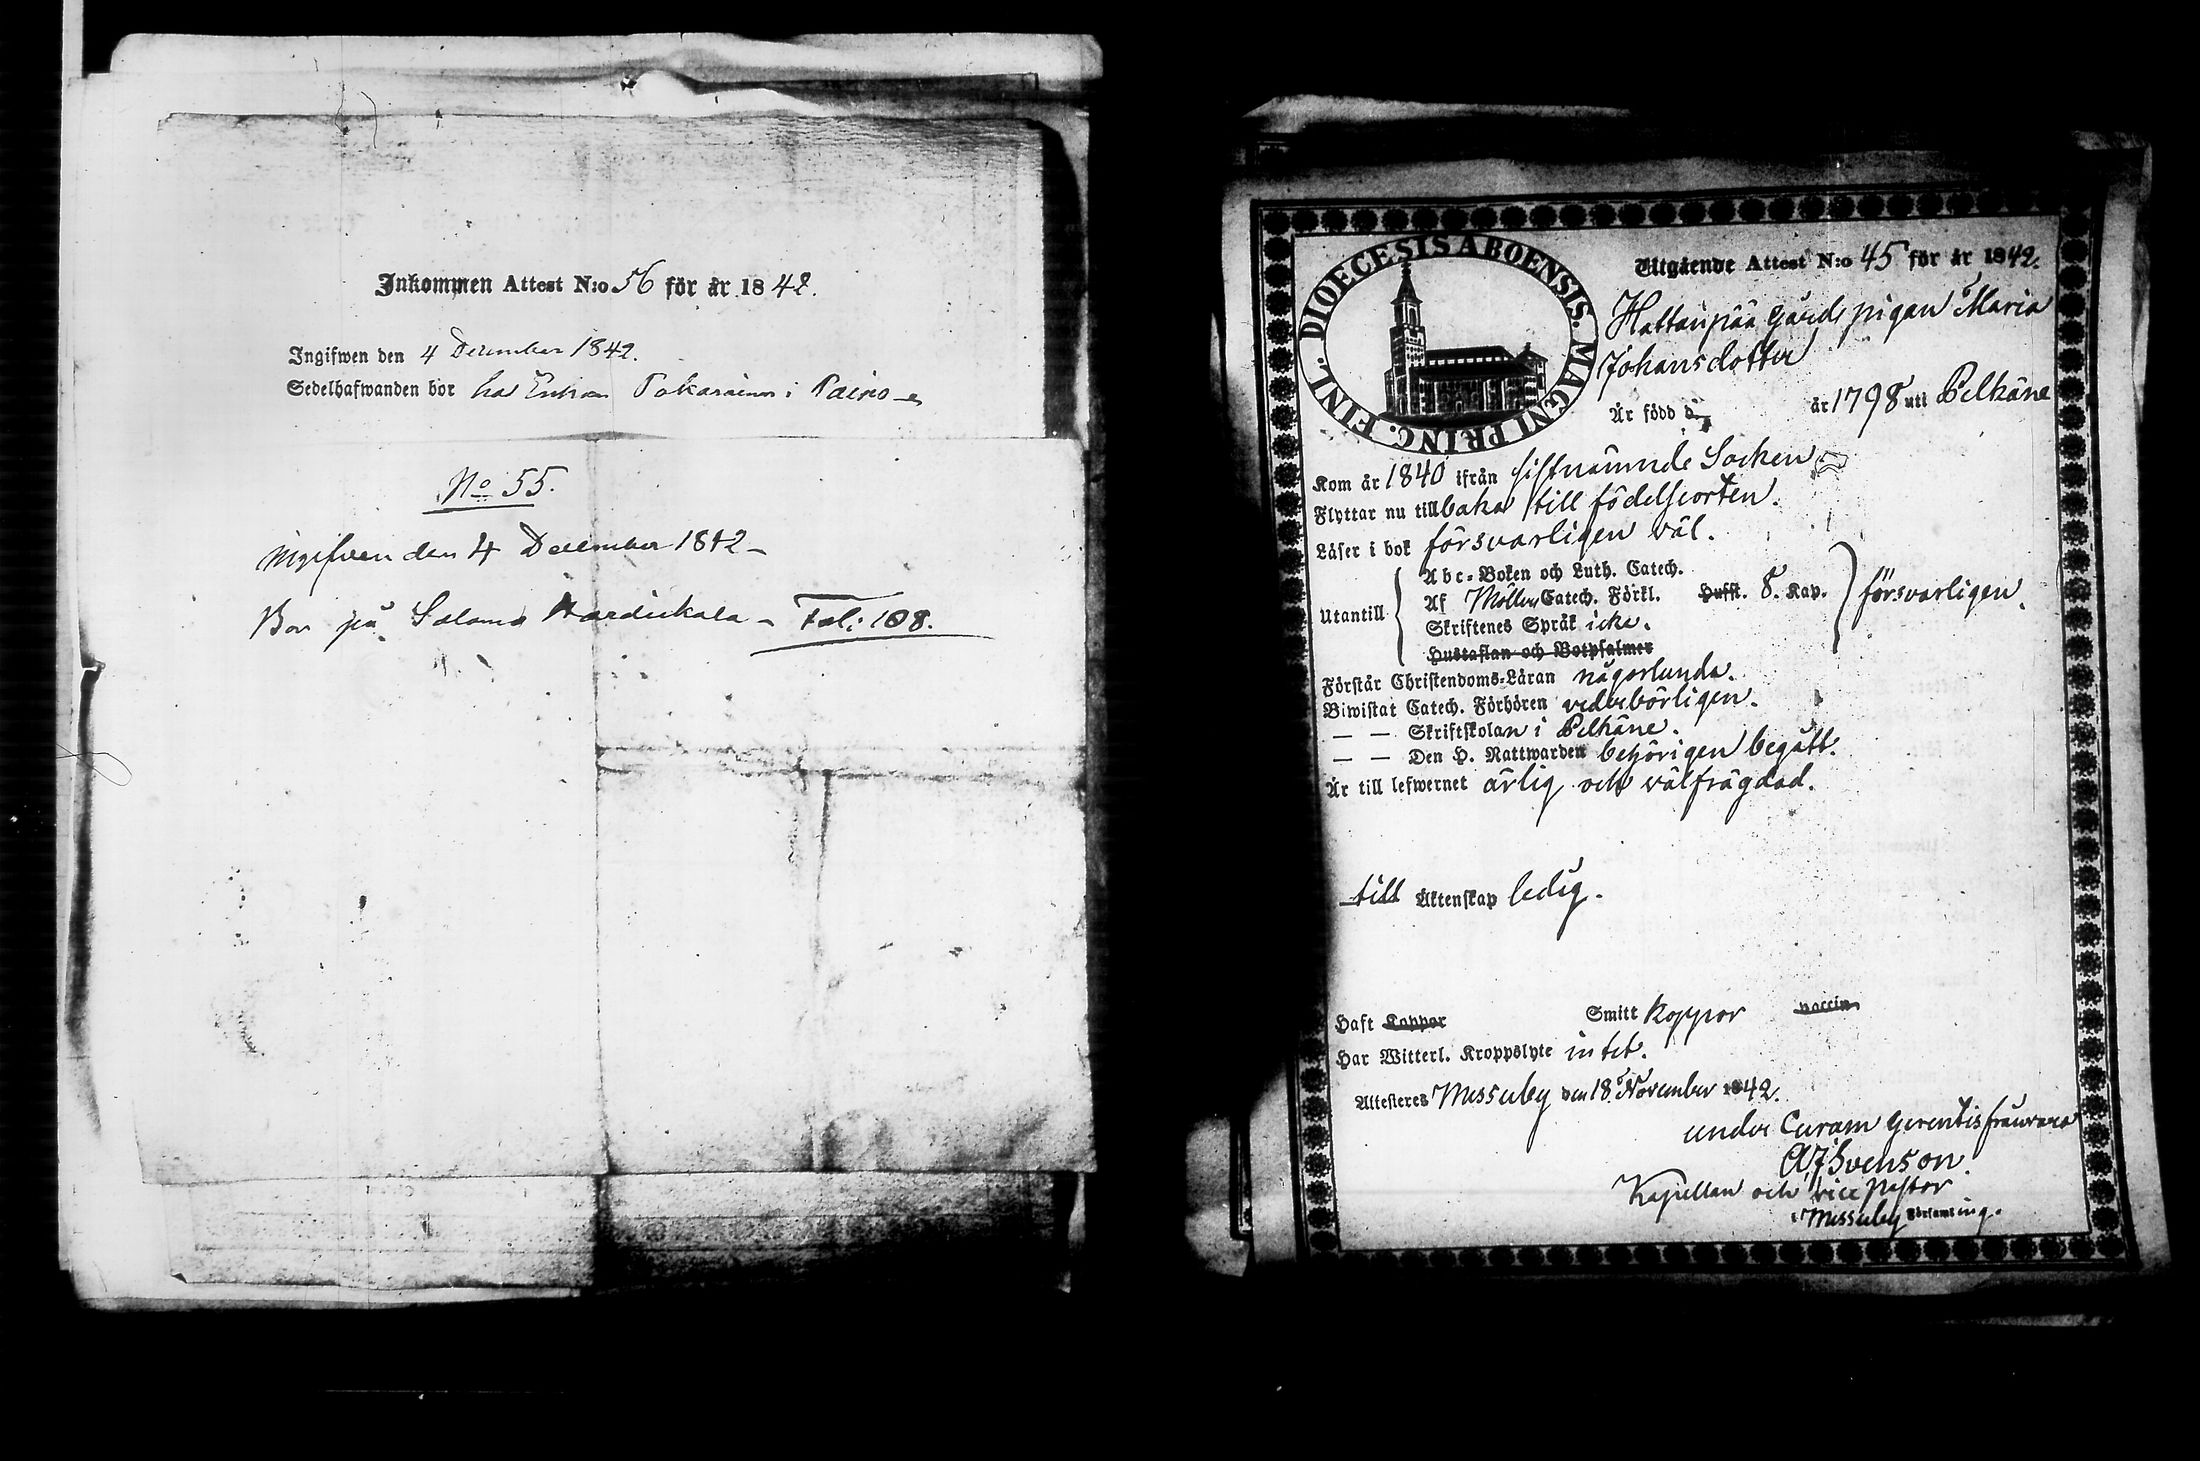 Inkommen Attest N:o 56 för år 1842.
Ingifwen den 4 December 1842.
Sedelhafwanden bor hos Enkan i
No 55.
Ingifven den 4 December 1842
Bor på Salomo Fol: 108.
DIOECESIS ABOENSIS. MAGNI PRINC. FINL.
Utgående Attest N:o 45 för år 1842.
Hattanpää Gårds pigan Maria
Johansdotter
Är född d. år 1798 uti Pelkäne
Kom år 1840 ifrån sistnämnde Socken
Flyttar nu tillbaka till födelseorten.
Läser i bok försvarligen väl.
Utantill
Abc-Boken och Luth. Catech.
Af Möllers Catech. Förkl. Hufst. 8. Kap. försvarligen.
Skriftenes Språk icke.
Hustaflan och Botpsalmer
Förstår Christendoms-Läran någorlunda.
Biwistat Catech. Förhören vederbörligen.
— — Skriftskolan i Pelkäne.
— — Den H. Nattwarden behörigen begått.
Är till lefwernet ärlig och välfrägdad.
till Äktenskap ledig.
Haft Koppor Smitt koppor vaccin
Har Witterl. Kroppslyte intet.
Attesteres Messuby den 18 November 1842.
under Curam gerentis frånvaro
A J Svenson.
Kapellan och vice Pastor
i Messuby Församling.